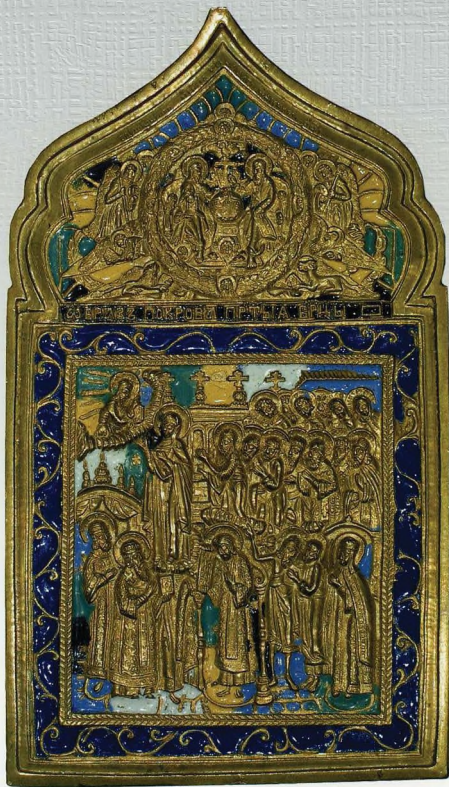 ѠБРАЗЪ ПОКРОВА ПРТЫѦ БРЦЫ